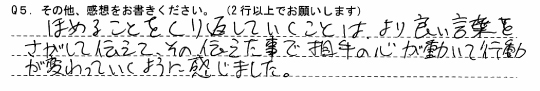 Q5. その他、感想をお書きください。（2行以上でお願いします）
ほめることをくり返していくことは、より良い言葉を
さがして伝えて、その伝えた事で相手の心が動いて行動
が変わっていくように感じました。